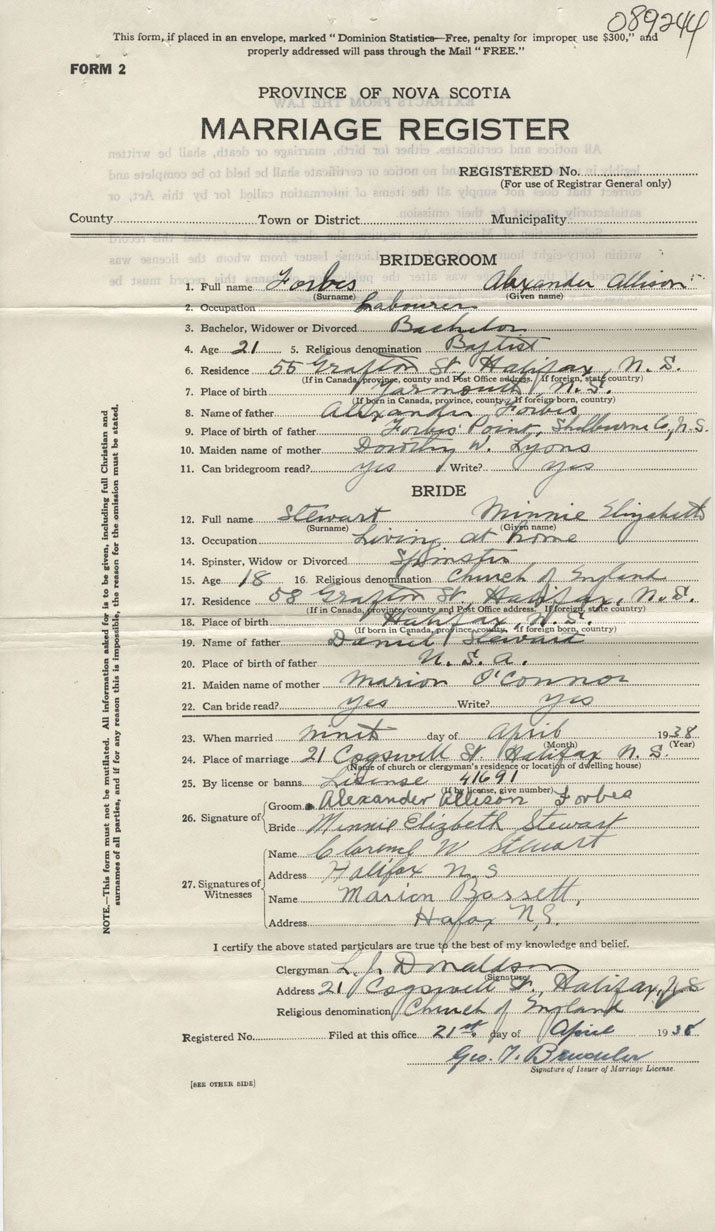 089244
This form, if placed in an envelope, marked "Dominion Statistics—Free, penalty for improper use $300," and
properly addressed will pass through the Mail "FREE."
FORM 2
PROVINCE OF NOVA SCOTIA
MARRIAGE REGISTER
REGISTERED No.
(For use of Registrar General only)
County Town or District Municipality
BRIDEGROOM
1. Full name Forbes Alexander Allison
(Surname) (Given name)
2. Occupation Labourer
3. Bachelor, Widower or Divorced Bachelor
4. Age 21 5. Religious denomination Baptist
6. Residence 55 Grafton St, Halifax, N. S.
(If in Canada, province, county and Post Office address. If foreign, state country)
7. Place of birth Yarmouth, N. S.
(If born in Canada, province, county, If foreign born, country)
8. Name of father Alexander Forbes
9. Place of birth of father Forbes Point, Shelburne Co, N. S.
10. Maiden name of mother Dorothy W. Lyons
11. Can bridegroom read? yes Write? yes
BRIDE
12. Full name Stewart Minnie Elizabeth
(Surname) (Given name)
13. Occupation Living at home
14. Spinster, Widow or Divorced Spinster
15. Age 18 16. Religious denomination Church of England
17. Residence 58 Grafton St, Halifax, N. S.
(If in Canada, province, county and Post Office address. If foreign, state country)
18. Place of birth Halifax, N. S.
(If born in Canada, province, county, If foreign born, country)
19. Name of father Daniel Stewart
20. Place of birth of father
21. Maiden name of mother Marion O'Connor
22. Can bride read? yes Write? yes
23. When married ninth day of April 1938
(Month) (Year)
24. Place of marriage 21 Cogswell St. Halifax N. S.
(Name of church or clergyman's residence or location of dwelling house)
25. By license or banns License 41691
(If by license, give number)
26. Signature of
Groom Alexander Allison Forbes
Bride Minnie Elizbeth Stewart
27. Signatures of Witnesses
Name W Stewart
Address Halifax N. S
Name Marion Bassett,
Address Hafax N.S.
I certify the above stated particulars are true to the best of my knowledge and belief.
Clergyman L. J. Donaldson
(Signature)
Address 21 Cogswell St, Halifax, N S
Religious denomination Church of England
Registered No. Filed at this office 21st day of April 1938
Geo. T.
Signature of Issuer of Marriage License.
[SEE OTHER SIDE]
NOTE.—This form must not be mutilated. All information asked for is to be given, including full Christian and
surnames of all parties, and if for any reason this is impossible, the reason for the omission must be stated.